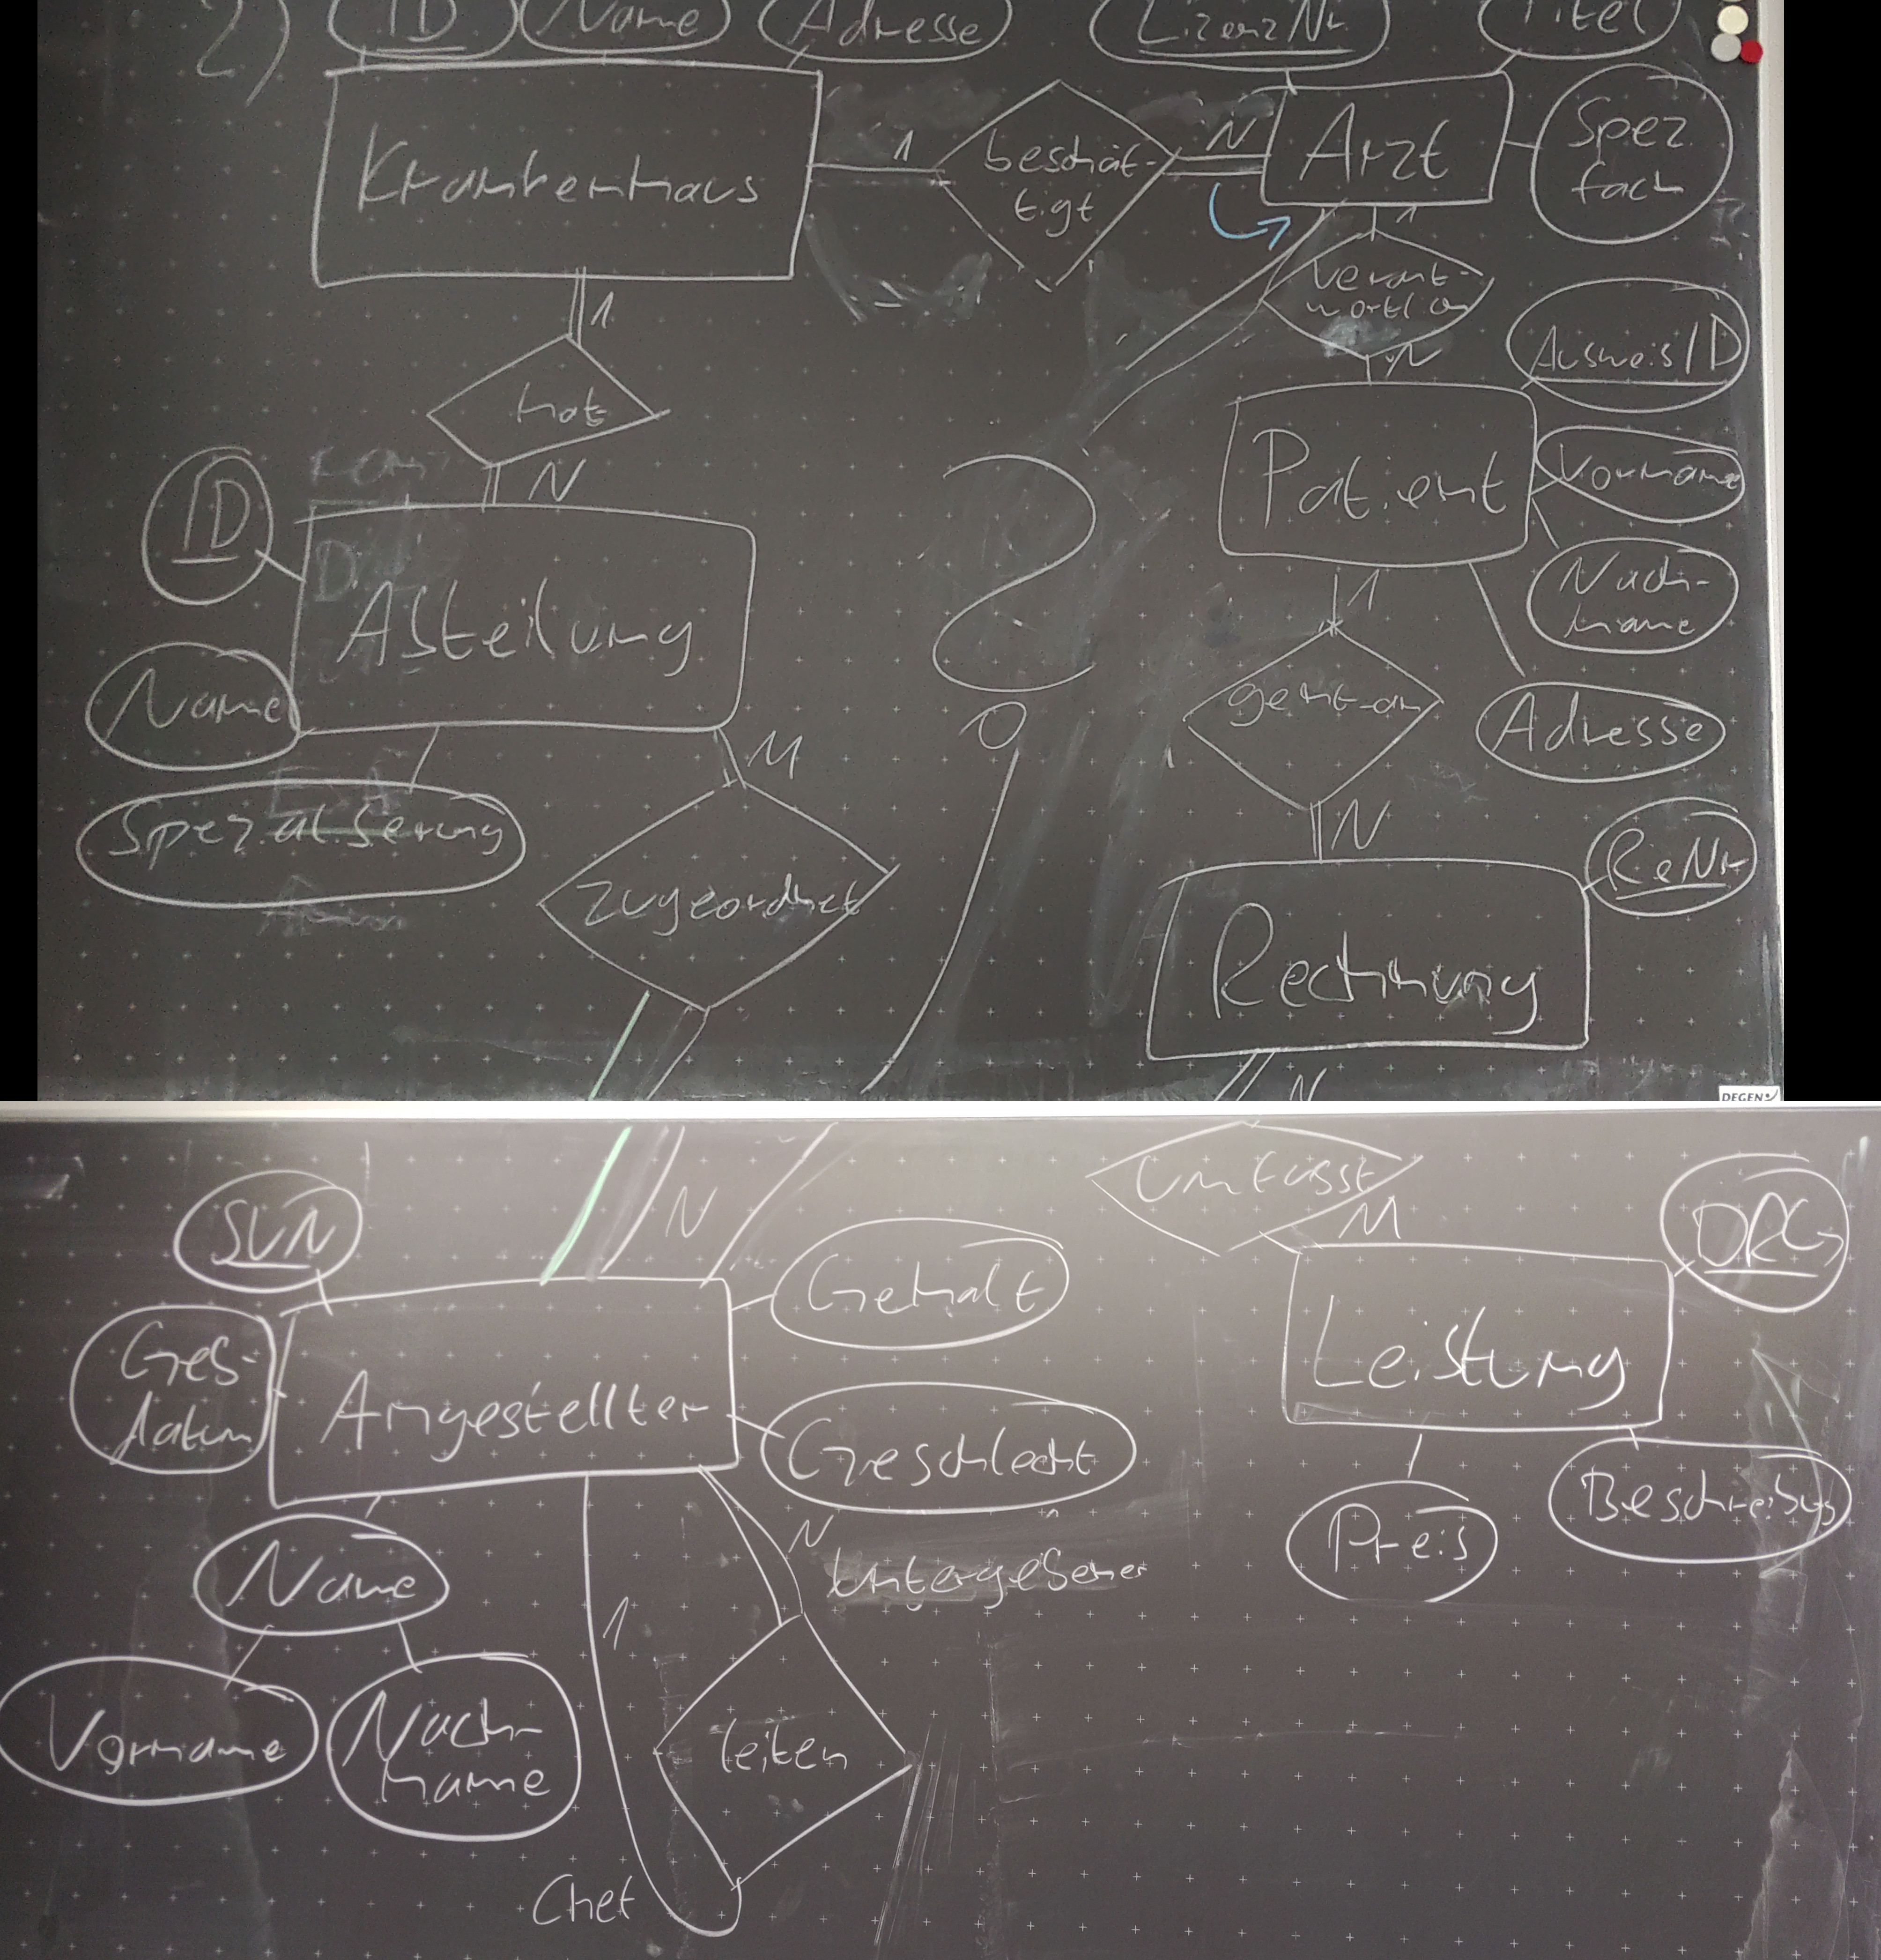 2)
ID
Name
Adresse
LizenzNr.
Titel
Krankenhaus
1
beschäf-
tigt
N
Arzt
Spez.
fach
1
verant-
wortlich
N
AusweisID
1
hat
N
Patient
Vorname
Nach-
name
Adresse
ID
Abteilung
Name
Spezialiserung
M
zugeordnet
1
geht-an
N
ReNr
Rechnung
N
DEGEN
N
umfasst
M
SVN
DRG
Gehalt
Geb-
datum
Angestellter
Leistung
Geschlecht
Preis
Beschreibung
Name
N
Untergebener
1
Vorname
Nach-
name
leiten
Chef